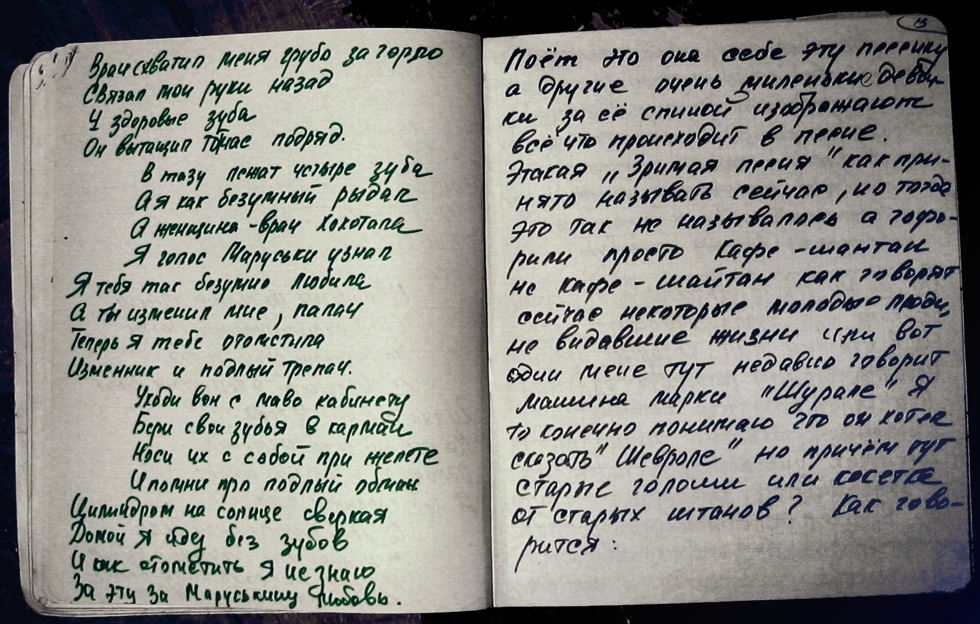 Врач схватил меня грубо за горло
Связал мои руки назад
И здоровые зуба
Он вытащил точас подряд.
В тазу лежат четыре зуба
А я как безумный рыдал
А женщина-врач хохотала
Я голос Маруськи узнал
Я тебя так безумно любила
А ты изменил мне, палач
Теперь я тебе отомстила
Изменник и подлый трепач.
Уходи вон с маво кабинету
Бери свои зубья в карман
Носи их с собой при жилете
И помни про подлый обман
Цилиндром на солнце сверкая
Домой я иду без зубов
И как отометить я не знаю
За эту За Маруськину любовь.
13
Поёт это она себе эту песенку
а другие очень миленькие девоч-
ки за её спиной изображают
всё что происходит в песне.
Этакая „Зримая песня" как при-
нято называть сейчас, но тогда
это так не называлось а гово-
рили просто кафе-шантан
не кафе-шайтан как говорят
сейчас некоторые молодые люди,
не видавшие жизни или вот
один мене тут недавно говорит
машина марки "Шурале" Я
то конечно понимаю что он хотел
сказать "Шевроле" но причём тут
старые галоши или
от старых штанов? Как гово-
рится: